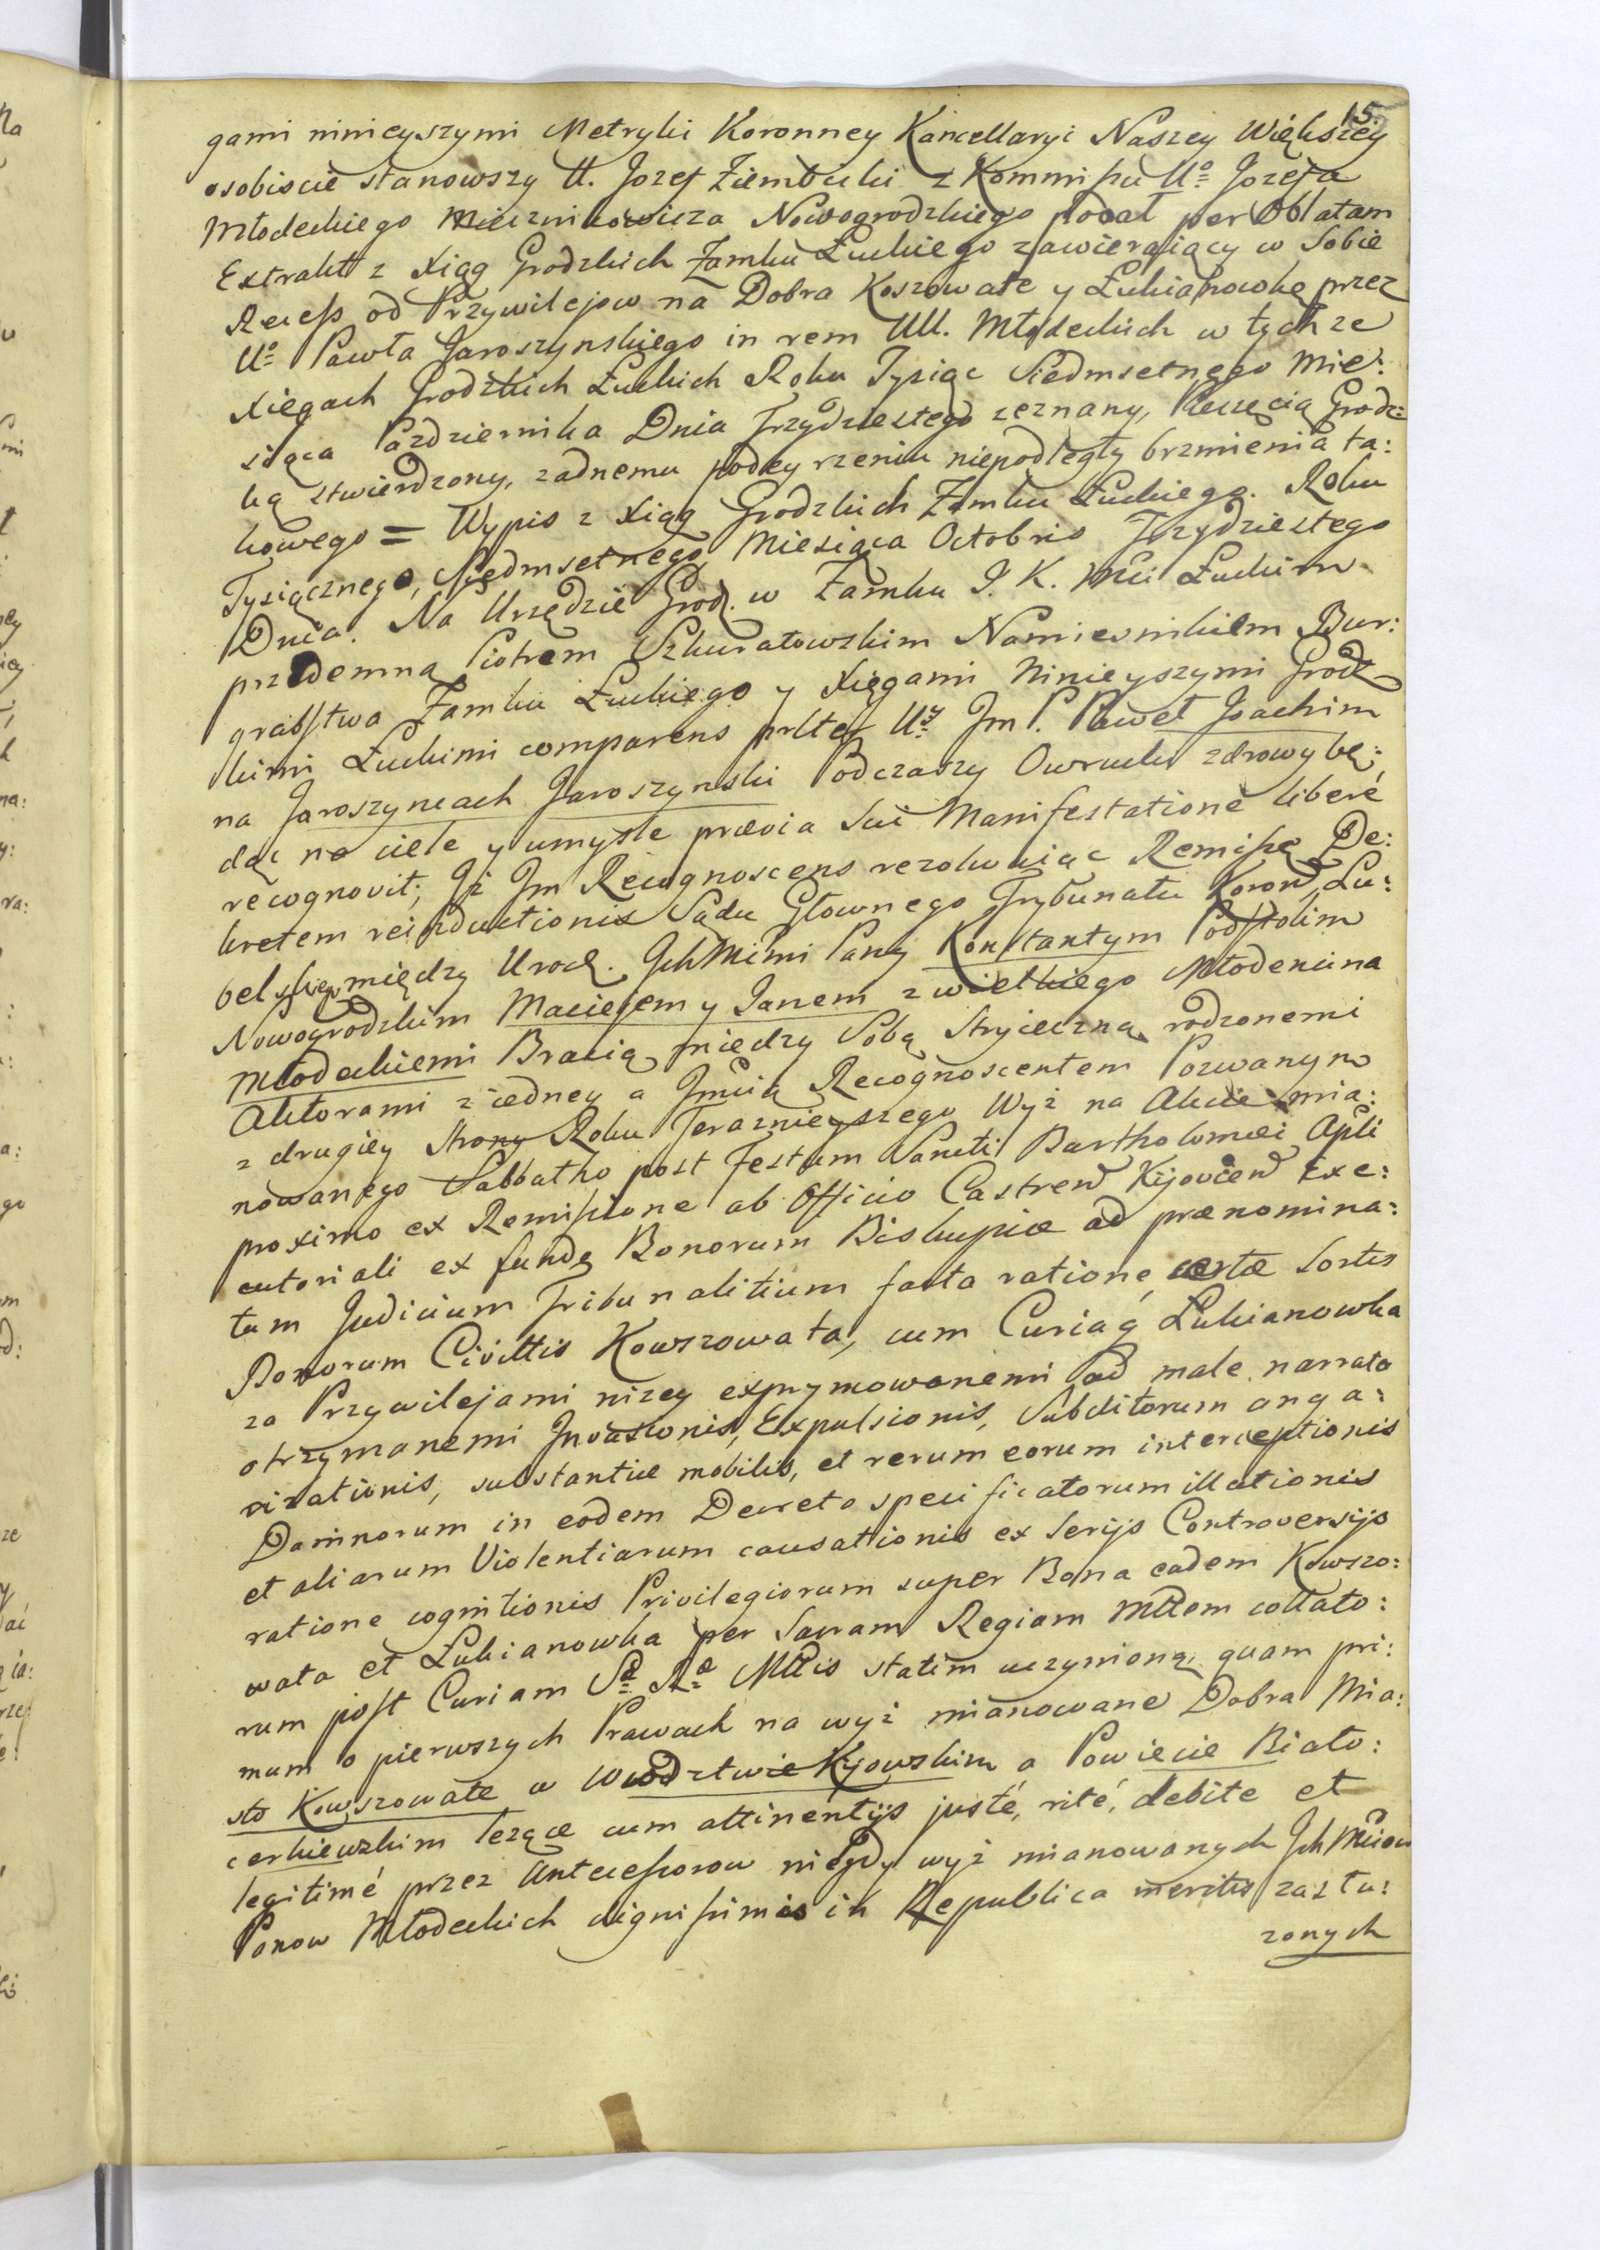 15.
gami ninieyszymi Metryki Koronney Kancellaryi Naszey Większey
osobiscie stanowszy U. Jozef Ziembicki z Kommissu Uo Jozefa
Młodeckiego Miecznikowicza Nowogrodzkiego podał per Oblatam
Extrakt z Xiąg Grodzkich Zamku Łuckiego zawieraiący w Sobie
Recess od Przywilejow na Dobra Koszowate y Łukianowkę przez
Uo Pawła Jaroszynskiego in rem UU. Młodeckich w tychze
Xięgach Grodzkich Łuckich Roku Tysiąc Siedmsetnego Mie:
siąca Pazdziernika Dnia Trzydziestego zeznany, Pieczęcią Grodz:
ką ztwierdzony, zadnemu podeyrzeniu niepodległy brzmienia ta:
kowego = Wypis z Xiąg Grodzkich Zamku Łuckiego. Roku
Tysiącznego, Siedmsetnego Miesiąca Octobris Trzydziestego
Dnia. Na Urzędzie Grod. w Zamku J. K. Mci Łuckim
przedemną Piotrem Szkuratowskim Namiesnikiem Bur:
grabstwa Zamku Łuckiego y Xięgami Ninieyszymi Grodz
kimi Łuckimi comparens prlter Ur Jm P. Paweł Joachim
na Jaroszyncach Jaroszynski Podczaszy Owrucki zdrowy bę:
dąc na ciele y umysle prævia Sui Manifestatione libere
recognovit; Iż Jm Recognoscens rezolwuiąc Remissę De:
kretem reinductionis Sądu Głownego Trybunału Koron Lu:
belskiego między Urodz. Ichmsćmi Pany Konstantym Podstolim
Nowogrodzkim Maciejem y Janem z wielkiego Młodenina
Młodeckiemi Bracią między Sobą Stryieczną rodzonemi
Aktorami z iedney a Jmcią Recognoscentem Pozwanym
z drugiey Strony Roku Teraznieyszego Wyż na Akcie mia:
nowanego Sabbatho post Festum Sancti Bartholomæi Apli
proximo ex Remissione ab Officio Castren Kijovien Exe:
cutoriali ex fundo Bonorum Biskupice ad prænomina:
tum Judicium Tribunalitium facta ratione certæ Sortis
Bonorum Civittis Kowszowata, cum Curia q Łukianowka
za Przywilejami nizey exprymowanemi ad male narrata
otrzymanemi Invasionis, Expulsionis, Subditorum anga:
rizationis, substantiæ mobilis, et rerum eorum interceptionis
Damnorum in eodem Decreto specificatorum illationis
et aliarum Violentiarum causationis ex Serijs Controversijs
ratione cognitionis Privilegiorum super Bona eadem Kowszo:
wata et Łukianowka per Sacram Regiam Mttem collato:
rum post Curiam Sæ Ræ Mttis statim uczynioną, quam pri:
mum o pierwszych Prawach na wyż mianowane Dobra Mia:
sto Kowszowate w Wodztwie Kijowskim a Powiecie Biało:
cerkiewskim lezące cum attinentijs juste, rite, debite et
legitime przez Antecessorow niegdy wyż mianowanych Ich Mciow
Panow Młodeckich dignissimis in Republica meritis zastu:
zonych